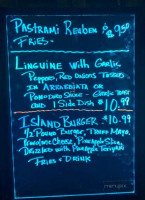 Pastrami Reuben &
Fries - $9.50
Linguine with Garlic
Peppers, Red Onions Tossed
In Arrabiata or
Pomodoro Sauce - Garlic Toast
and 1 Side Dish $10.99
Island Burger $10.99
1/2 Pound Burger, Mayo
Provolone Cheese, Pineapple Slice,
Drizzled with Pineapple Teriyaki
Fries + Drink